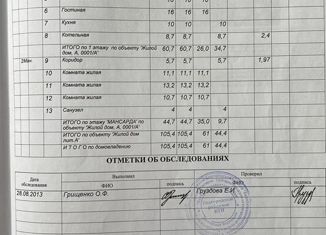 6 Гостиная 16 16 16
7 Кухня 10 10 10
8 Котельная 8 8 8 2,4
ИТОГО по 1 этажу по объекту "Жилой дом, А, 0001/А" 60,7 60,7 26,0 34,7
9 Коридор 5,7 5,7 5,7 1,97
10 Комната жилая 11,1 11,1 11,1
11 Комната жилая 13,2 13,2 13,2
12 Комната жилая 10,7 10,7 10,7
13 Санузел 4 4 4
ИТОГО по этажу "МАНСАРДА" по объекту "Жилой дом, А, 0001/А" 44,7 44,7 35,0 9.7
ИТОГО по объекту "Жилой дом лит.А" 105,4 105,4 61 44,4
И Т О Г О по домовладению 105,4 105,4 61 44,4
ОТМЕТКИ ОБ ОБСЛЕДОВАНИЯХ
Дата обследования Выполнил Проверил
ФИО подпись ФИО подпись
28.08.2013 Грищенко О.Ф. Груздова Е.И.